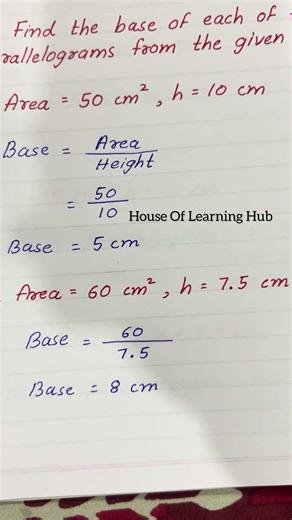 Find the base of each of
rallelograms from the given
Area = 50 cm², h = 10 cm
Base = Area / Height
= 50 / 10
House Of Learning Hub
Base = 5 cm
Area = 60 cm², h = 7.5 cm
Base = 60 / 7.5
Base = 8 cm